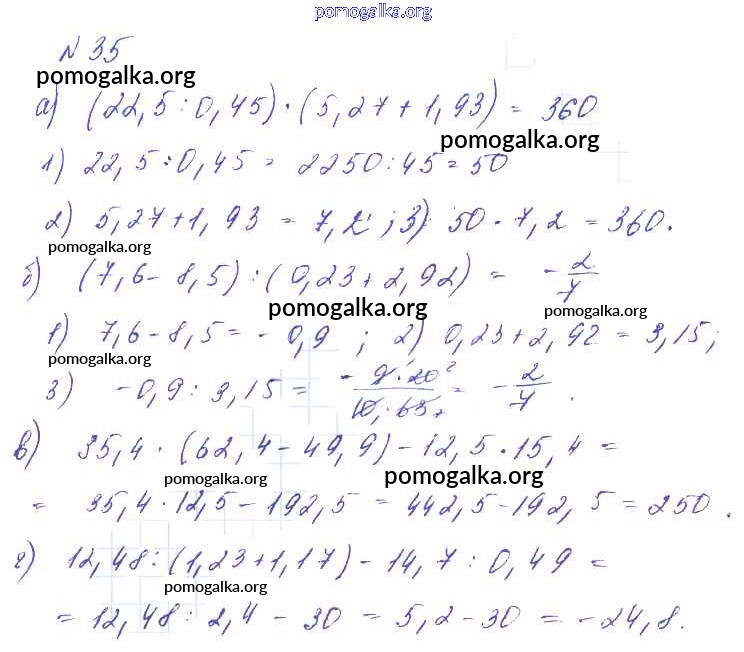 pomogalka.org
№ 35
pomogalka.org
а) (22,5 : 0,45) · (5,27 + 1,93) = 360
pomogalka.org
1) 22,5 : 0,45 = 2250 : 45 = 50
2) 5,27 + 1,93 = 7,2 ; 3) 50 · 7,2 = 360.
pomogalka.org
б) (7,6 - 8,5) : (0,23 + 2,92) = - 2/7
pomogalka.org pomogalka.org
1) 7,6 - 8,5 = - 0,9 ; 2) 0,23 + 2,92 = 3,15 ;
pomogalka.org
3) - 0,9 : 3,15 = - 9·20 2 / 10·63 7 = - 2/7 .
в) 35,4 · (62,4 - 49,9) - 12,5 · 15,4 =
pomogalka.org pomogalka.org
= 35,4 · 12,5 - 192,5 = 442,5 - 192,5 = 250 .
г) 12,48 : (1,23 + 1,17) - 14,7 : 0,49 =
pomogalka.org
= 12,48 : 2,4 - 30 = 5,2 - 30 = - 24,8.